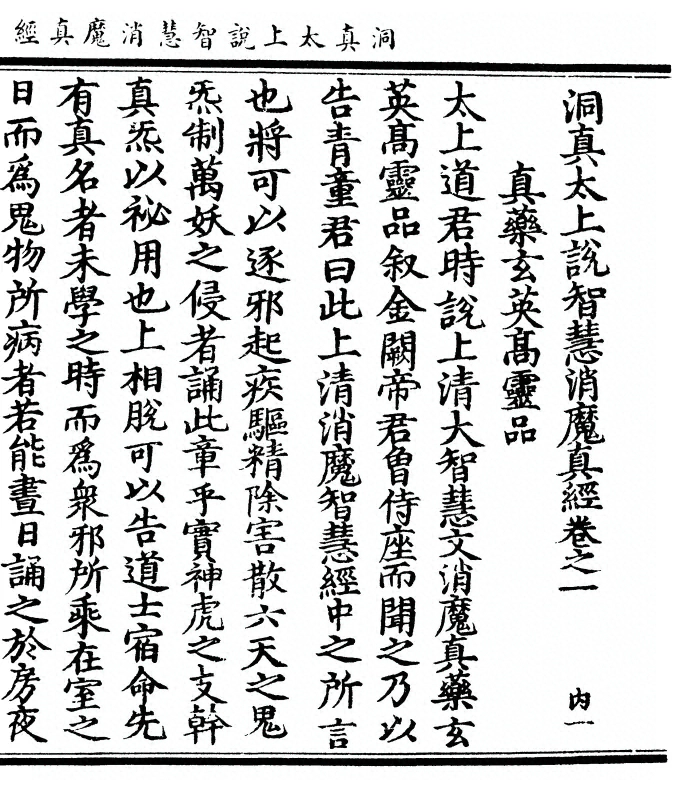 洞真太上說智慧消魔真經
洞真太上說智慧消魔真經卷之一　内一
真藥玄英髙靈品
太上道君時說上清大智慧文消魔真藥玄
英髙靈品叙金闕帝君曾侍座而聞之乃以
告青童君曰此上清消魔智慧經中之所言
也將可以逐邪起疾驅精除害散六天之鬼
炁制萬妖之侵者誦此章乎實神虎之支幹
真炁以祕用也上相脫可以告道士宿命先
有真名者未學之時而爲衆邪所乘在室之
日而爲鬼物所病者若能晝日誦之於房夜